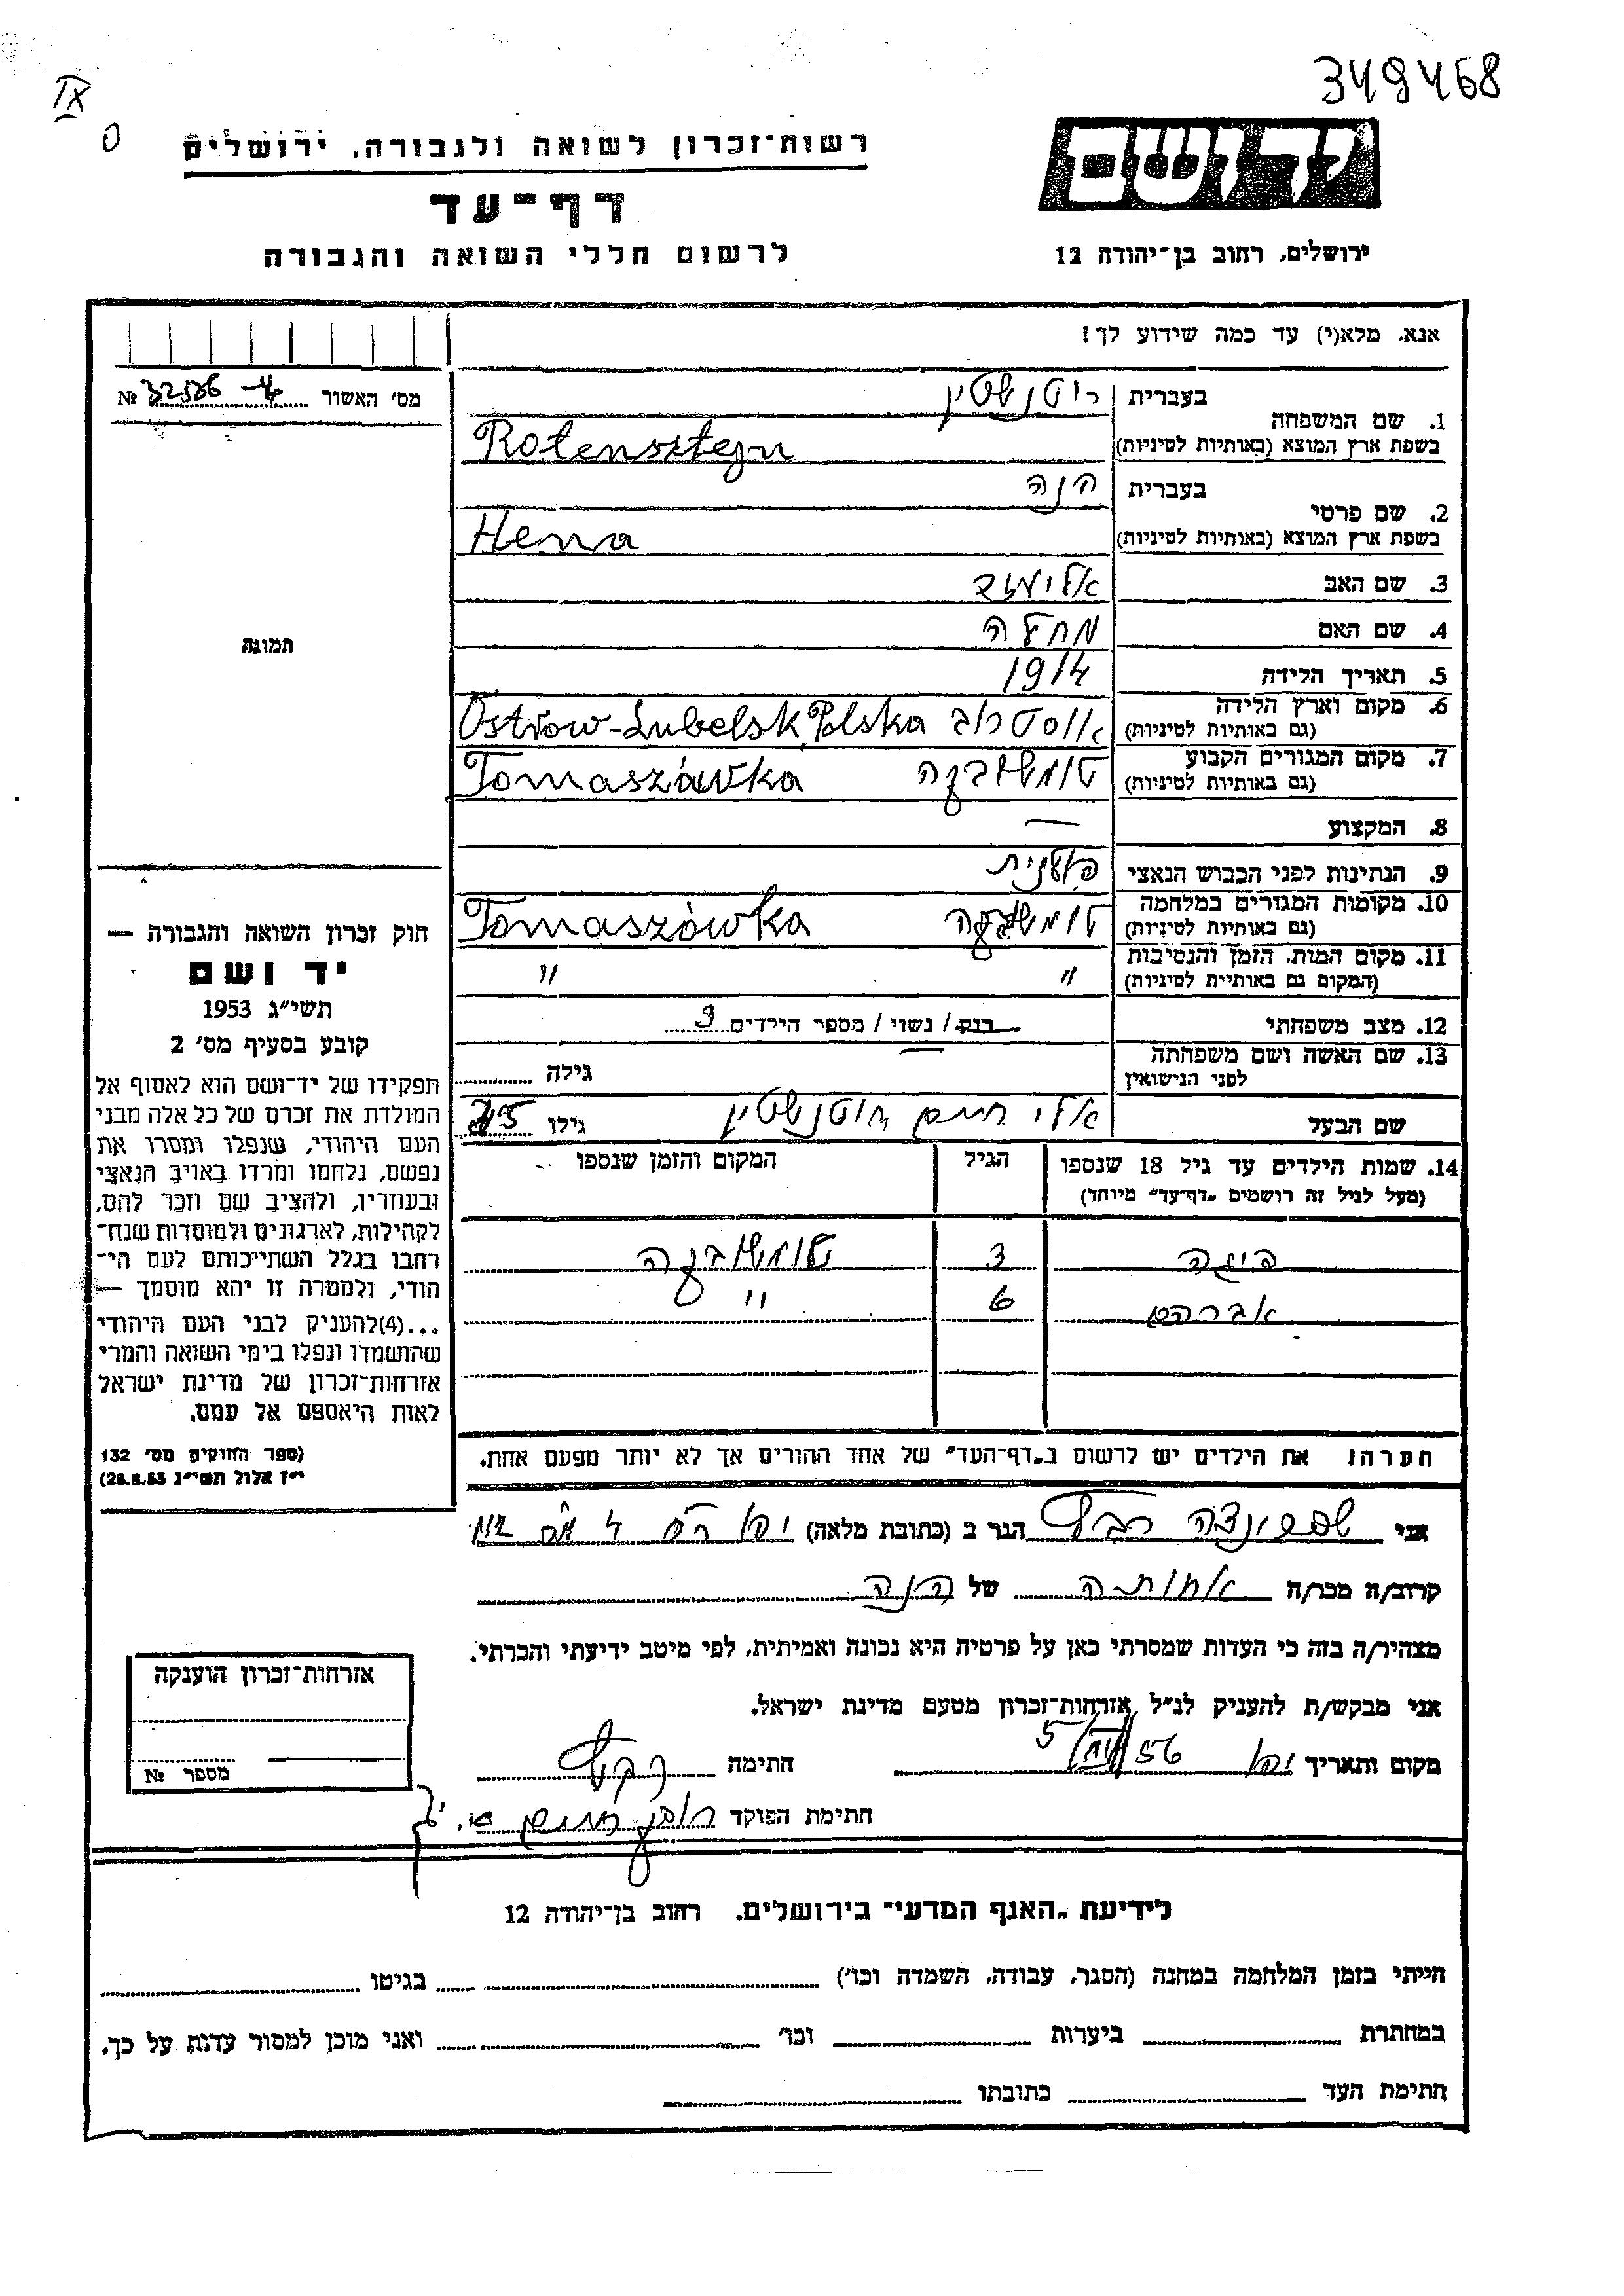 349468
IX
רשות־זכרון לשואה ולגבורה, ירושלים
יד ושם
דף־עד
לרשום חללי השואה והגבורה
ירושלים, רחוב בן־יהודה 12
אנא, מלא(י) עד כמה שידוע לך!
מס׳ האשור № 32586
1. שם המשפחה
בעברית רוטנשטיין
בשפת ארץ המוצא (באותיות לטיניות) Rotensztejn
2. שם פרטי
בעברית הנה
בשפת ארץ המוצא (באותיות לטיניות) Henna
3. שם האב
4. שם האם מחלה
5. תאריך הלידה 1914
6. מקום וארץ הלידה אוסטרוב Ostrow-Lubelsk Polska
(גם באותיות לטיניות)
7. מקום המגורים הקבוע טומשובקה Tomaszówka
(גם באותיות לטיניות)
8. המקצוע —
9. הנתינות לפני הכבוש הנאצי פולנית
10. מקומות המגורים במלחמה טומשובקה Tomaszówka
(גם באותיות לטיניות)
11. מקום המות, הזמן והנסיבות " "
(המקום גם באותיית לטיניות)
12. מצב משפחתי רווק / נשוי / מספר הילדים 3
13. שם האשה ושם משפחתה — גילה
לפני הנישואין
שם הבעל אלי חיים רוטנשטיין גילו 45
14. שמות הילדים עד גיל 18 שנספו הגיל המקום והזמן שנספו
(מעל לגיל זה רושמים „דף־עד״ מיוחד)
פיגה 3 טומשובקה
אברהם 6 "
הערה: את הילדים יש לרשום ב„דף־העד״ של אחד ההורים אך לא יותר מפעם אחת.
תמונה
חוק זכרון השואה והגבורה —
יד ושם
תשי״ג 1953
קובע בסעיף מס׳ 2
תפקידו של יד־ושם הוא לאסוף אל
המולדת את זכרם של כל אלה מבני
העם היהודי, שנפלו ומסרו את
נפשם, נלחמו ומרדו באויב הנאצי
ובעוזריו, ולהציב שם וזכר להם,
לקהילות, לארגונים ולמוסדות שנח־
רחבו בגלל השתייכותם לעם הי־
הודי, ולמטרה זו יהא מוסמך —
...(4)להעניק לבני העם היהודי
שהושמדו ונפלו בימי השואה והמרי
אזרחות־זכרון של מדינת ישראל
לאות היאספם אל עמם.
(ספר החוקים מס׳ 132
י״ז אלול תשי״ג 28.8.53)
אני הגר ב (כתובת מלאה) יפו
קרוב/ה מכר/ה אחותה של הנה
מצהיר/ה בזה כי העדות שמסרתי כאן על פרטיה היא נכונה ואמיתית, לפי מיטב ידיעתי והכרתי.
אני מבקש/ת להעניק לנ״ל אזרחות־זכרון מטעם מדינת ישראל.
מקום ותאריך יפו 5/VIII/56 חתימה
חתימת הפוקד
אזרחות־זכרון הוענקה
מספר №
לידיעת „האנף המדעי״ בירושלים. רחוב בן־יהודה 12
הייתי בזמן המלחמה במחנה (הסגר, עבודה, השמדה וכו׳) בגיטו
במחתרת ביערות וכו׳ ואני מוכן למסור עדות על כך.
חתימת העד כתובתו